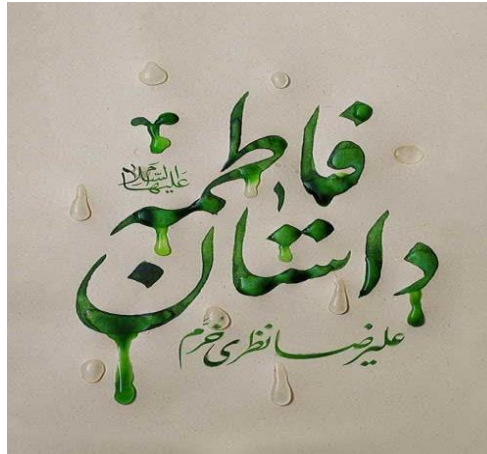 فاطمه
علیهاالسلام
داستان
علیرضا نظری خرّم